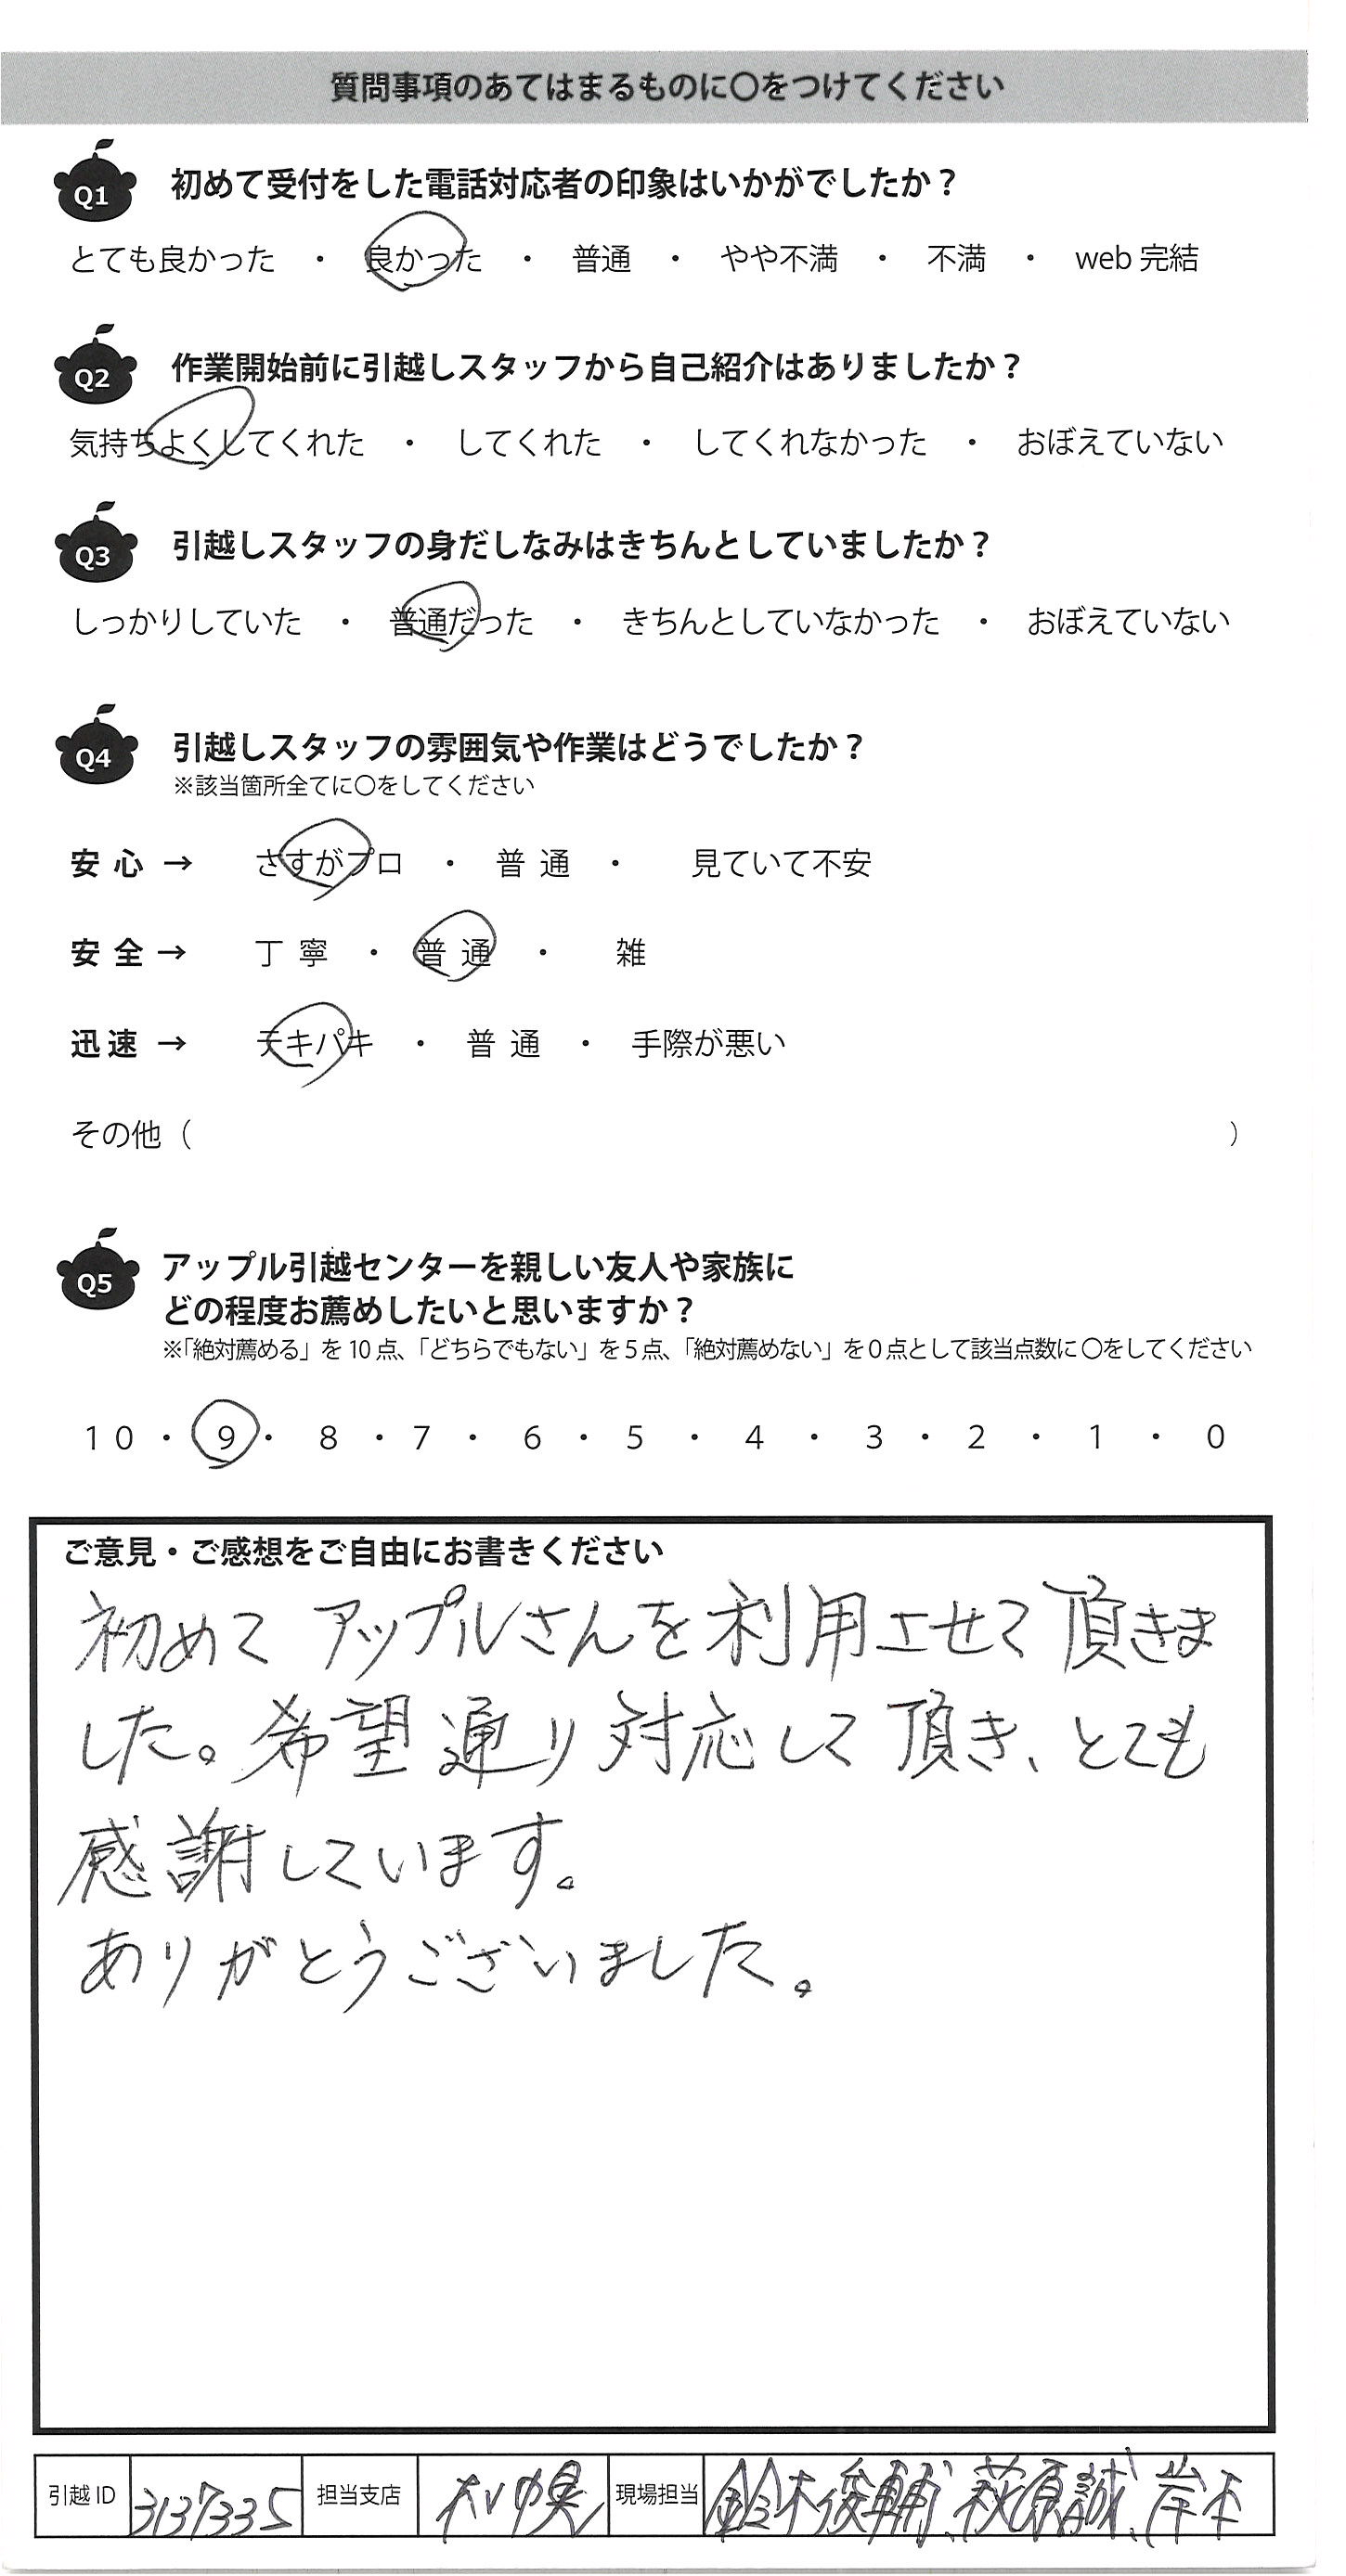 質問事項のあてはまるものに〇をつけてください
Q1 初めて受付をした電話対応者の印象はいかがでしたか？
とても良かった ・ 良かった ・ 普通 ・ やや不満 ・ 不満 ・ web 完結
Q2 作業開始前に引越しスタッフから自己紹介はありましたか？
気持ちよくしてくれた ・ してくれた ・ してくれなかった ・ おぼえていない
Q3 引越しスタッフの身だしなみはきちんとしていましたか？
しっかりしていた ・ 普通だった ・ きちんとしていなかった ・ おぼえていない
Q4 引越しスタッフの雰囲気や作業はどうでしたか？
※該当箇所全てに〇をしてください
安心 → さすがプロ ・ 普通 ・ 見ていて不安
安全 → 丁寧 ・ 普通 ・ 雑
迅速 → テキパキ ・ 普通 ・ 手際が悪い
その他（ ）
Q5 アップル引越センターを親しい友人や家族に
どの程度お薦めしたいと思いますか？
※「絶対薦める」を 10 点、「どちらでもない」を 5 点、「絶対薦めない」を 0 点として該当点数に 〇をしてください
10 ・ 9 ・ 8 ・ 7 ・ 6 ・ 5 ・ 4 ・ 3 ・ 2 ・ 1 ・ 0
ご意見・ご感想をご自由にお書きください
初めて アップルさんを利用させて頂きま
した。希望通り対応して頂き、とても
感謝しています。
ありがとうございました。
引越 ID 3137335 担当支店 現場担当 鈴木俊輔、萩原誠、岸本